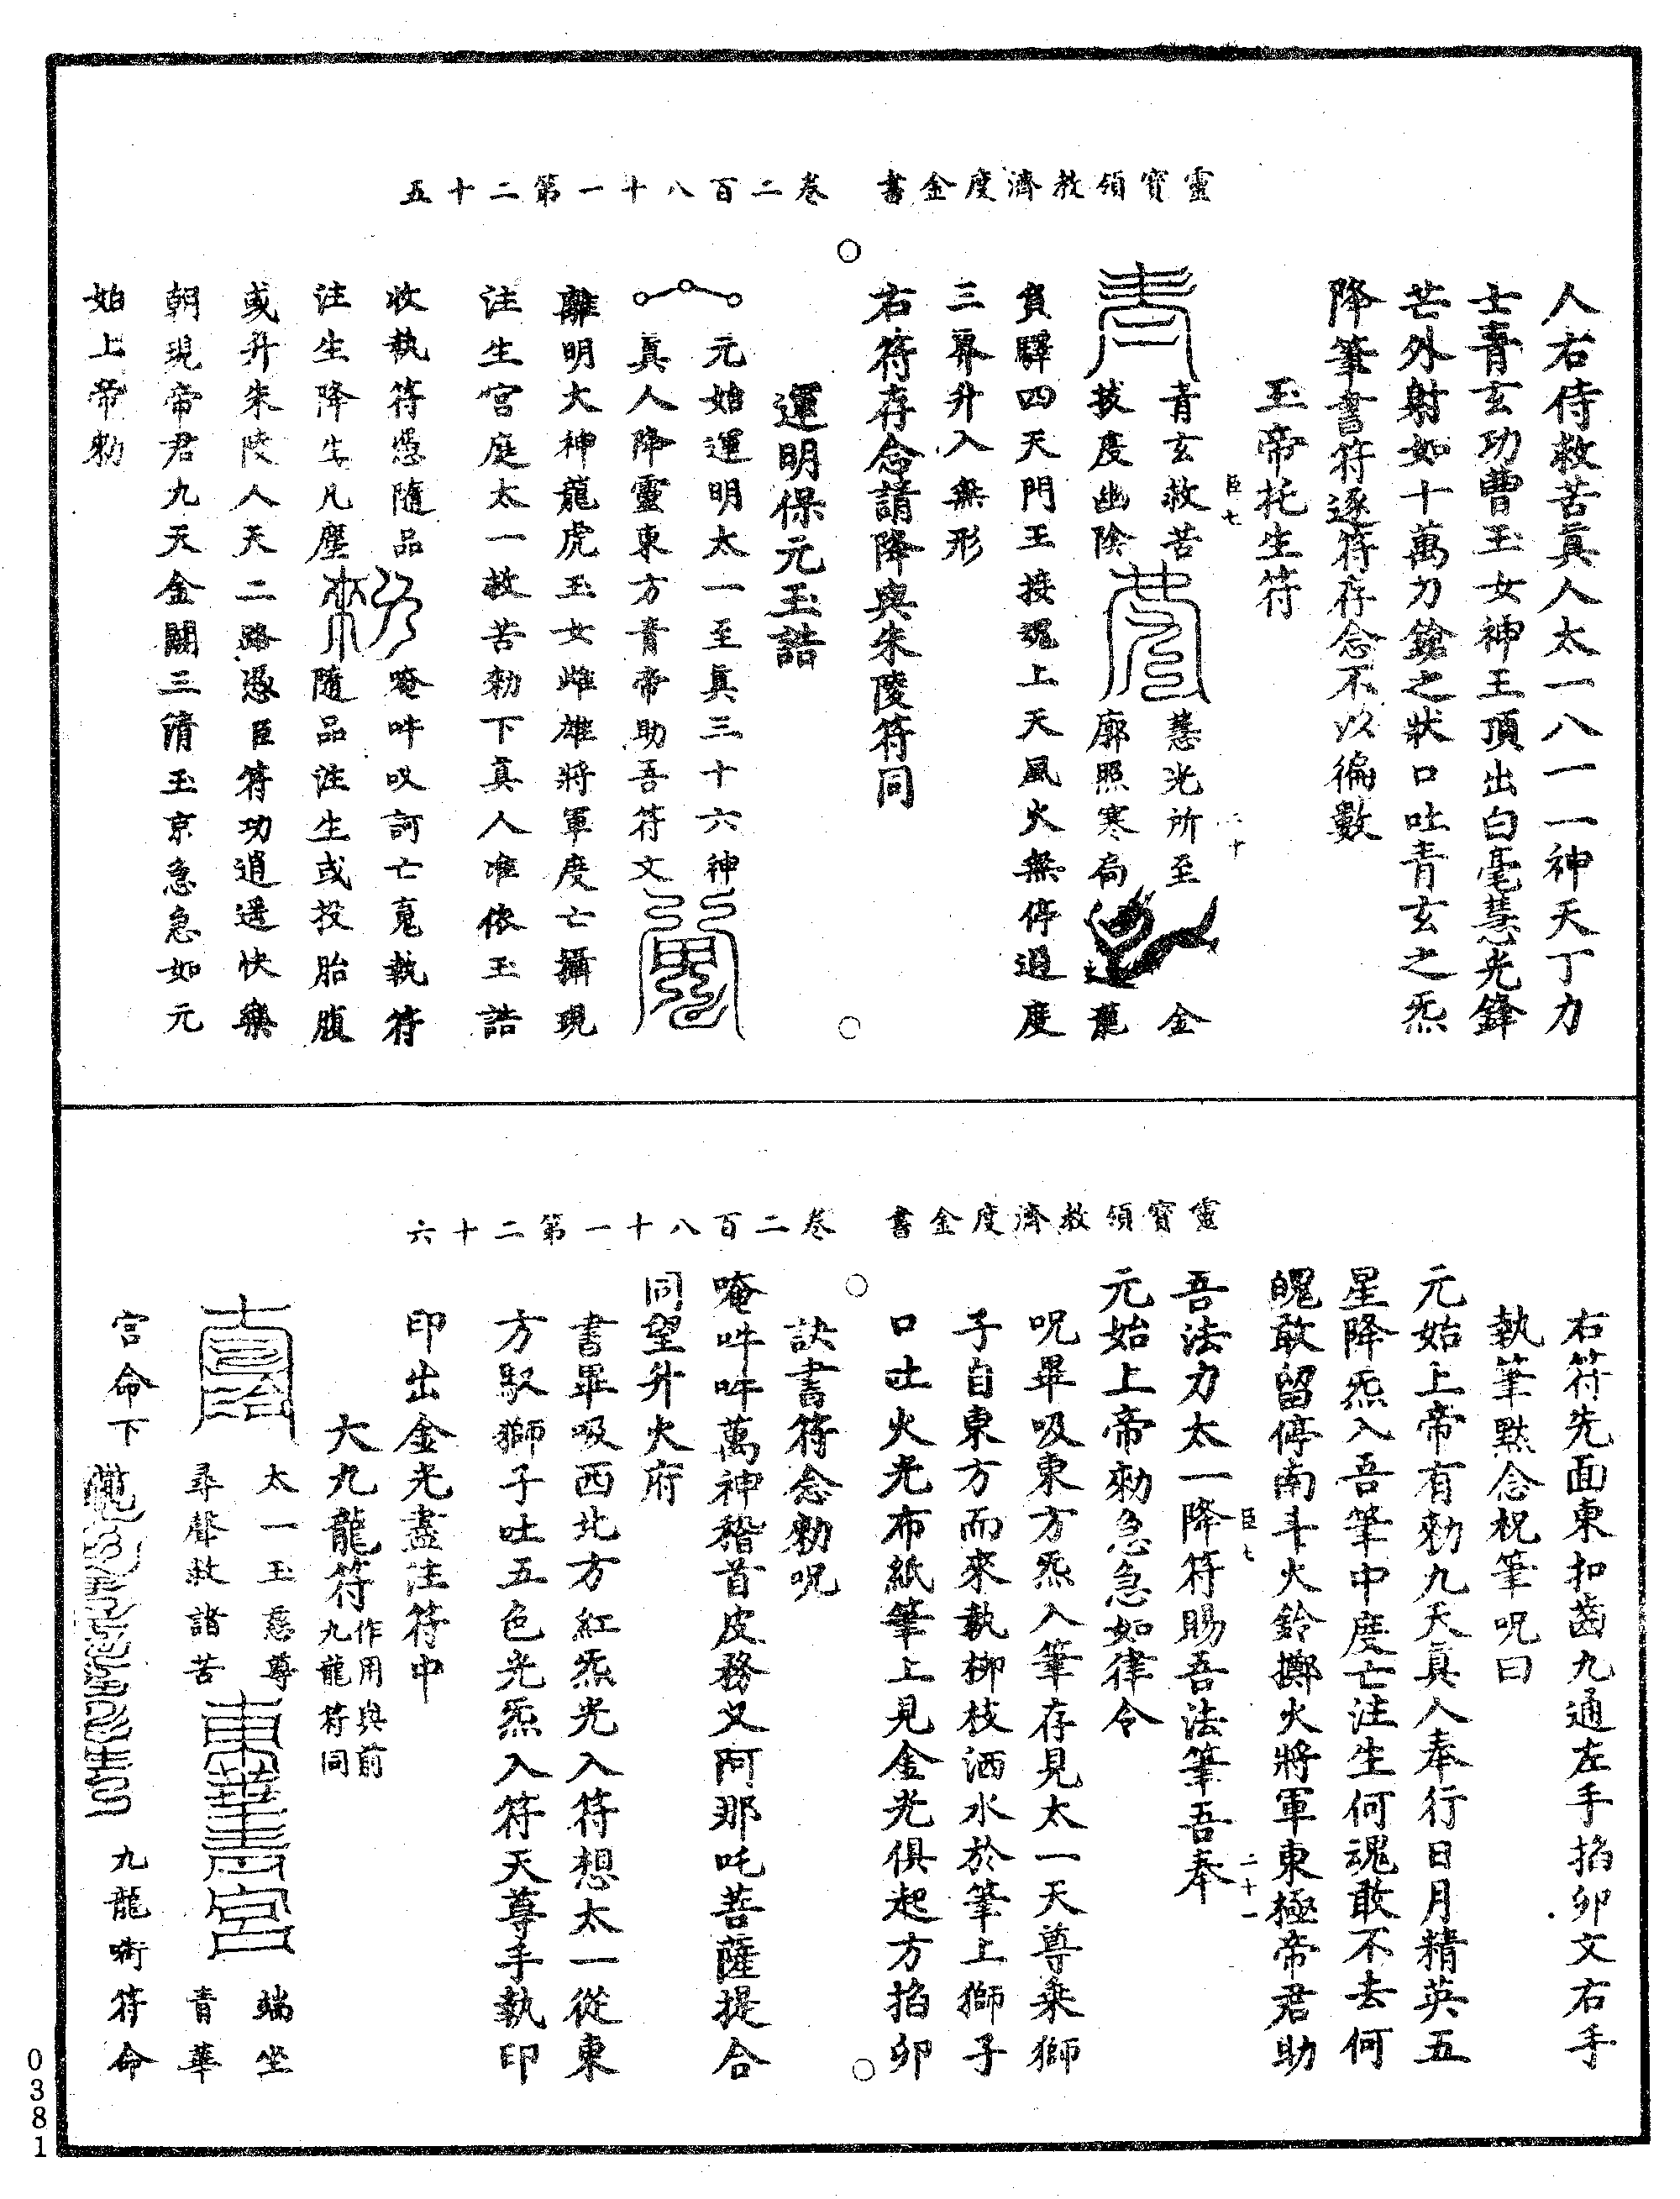 靈寶領教濟度金書　卷二百八十一第二十五
人右侍救苦真人太一八一一一神天丁力
士青玄功曹玉女神王頂出白毫慧光鋒
芒外射如十萬力鎗之狀口吐青玄之炁
降筆書符逐符存念不以徧數
玉帝托生符
臣七　二十
青玄救苦　慧光所至　金
拔度幽陰　廓照寒局　龍
負驛四天門王接魂上天風火無停過度
三界升入無形
右符存念請降與朱陵符同
運明保元玉誥
元始運明太一至真三十六神
真人降靈東方青帝助吾符文
離明大神龍虎玉女雌雄將軍度亡攝現
注生宮庭太一救苦勑下真人准依玉誥
收執符憑隨品　唵吽㕹訶亡䰟執符
注生降生凡塵　隨品注生或投胎腹
或升朱陵人天二路憑臣符功逍遥快樂
朝現帝君九天金闕三清玉京急急如元
始上帝勑
靈寶領教濟度金書　卷二百八十一第二十六
右符先面東扣齒九通左手掐卯文右手
執筆默念祝筆呪曰
元始上帝有勑九天真人奉行日月精英五
星降炁入吾筆中度亡注生何魂敢不去何
魄敢留停南斗火鈴擲火將軍東極帝君助
臣七　二十一
吾法力太一降符賜吾法筆吾奉
元始上帝勑急急如律令
呪畢吸東方炁入筆存見太一天尊乘獅
子自東方而來執柳枝洒水於筆上獅子
口吐火光布紙筆上見金光俱起方掐卯
訣書符念勑呪
唵吽吽萬神稽首皮務义阿那吒菩薩提合
同望升火府
書畢吸西北方紅炁光入符想太一從東
方馭獅子吐五色光炁入符天尊手執印
印出金光盡注符中
大九龍符作用與前九龍符同
太一玉慈尊　端坐
尋聲救諸苦　青華
宮命下　九龍㘅符命
0381